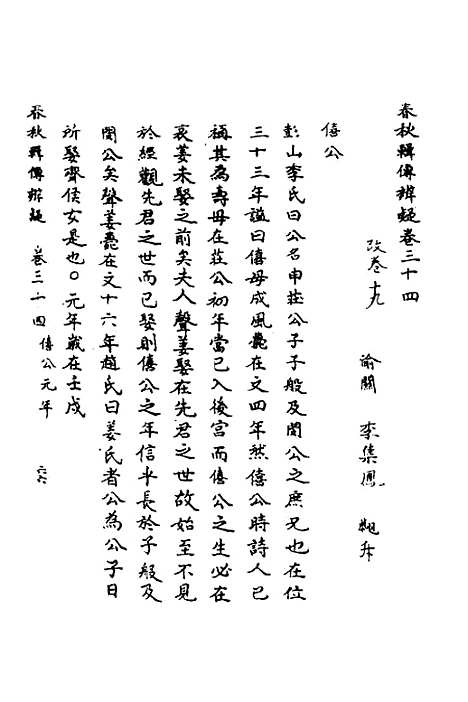 春秋輯傳辨疑卷三十四
改卷十九　渝關　李集鳳　翽升
僖公
彭山李氏曰公名申莊公子子般及閔公之庶兄也在位
三十三年諡曰僖母成風薨在文四年然僖公時詩人已
稱其為壽母在莊公初年當已入後宮而僖公之生必在
哀姜未娶之前矣夫人聲姜娶在先君之世故始至不見
於經觀先君之世而已娶則僖公之年信乎長於子般及
閔公矣聲姜薨在文十六年趙氏曰姜氏者公為公子日
所娶齊侯女是也○元年歲在壬戌
春秋輯傳辨疑　卷三十四　僖公元年　六六